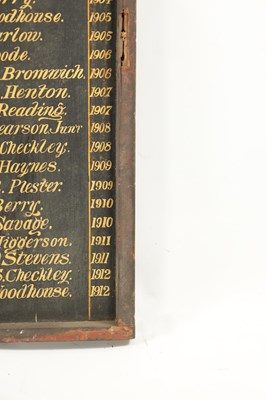 rry. 1904
odhouse. 1905
arlow. 1905
ode. 1906
Bromwich. 1906
Henton. 1907
Reading. 1907
earson Junr 1908
Checkley. 1908
Haynes. 1909
Pluster. 1909
Berry. 1910
Savage. 1910
iggerson. 1911
Stevens. 1911
S. Checkley. 1912
oodhouse. 1912